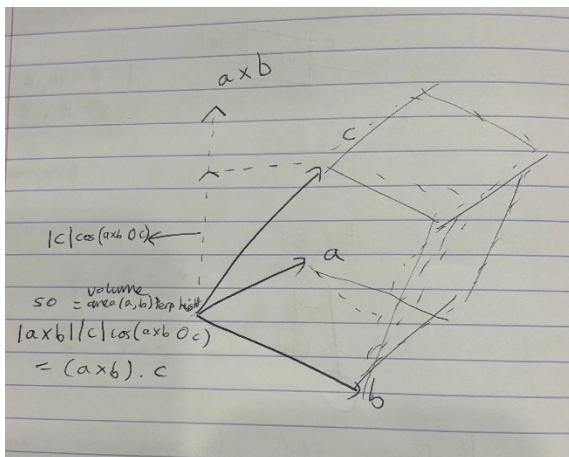 a x b
c
|c| cos(axb O c)
a
volume
so = area(a,b) Perp height
|axb||c|cos(axb O c)
= (axb) . c
b